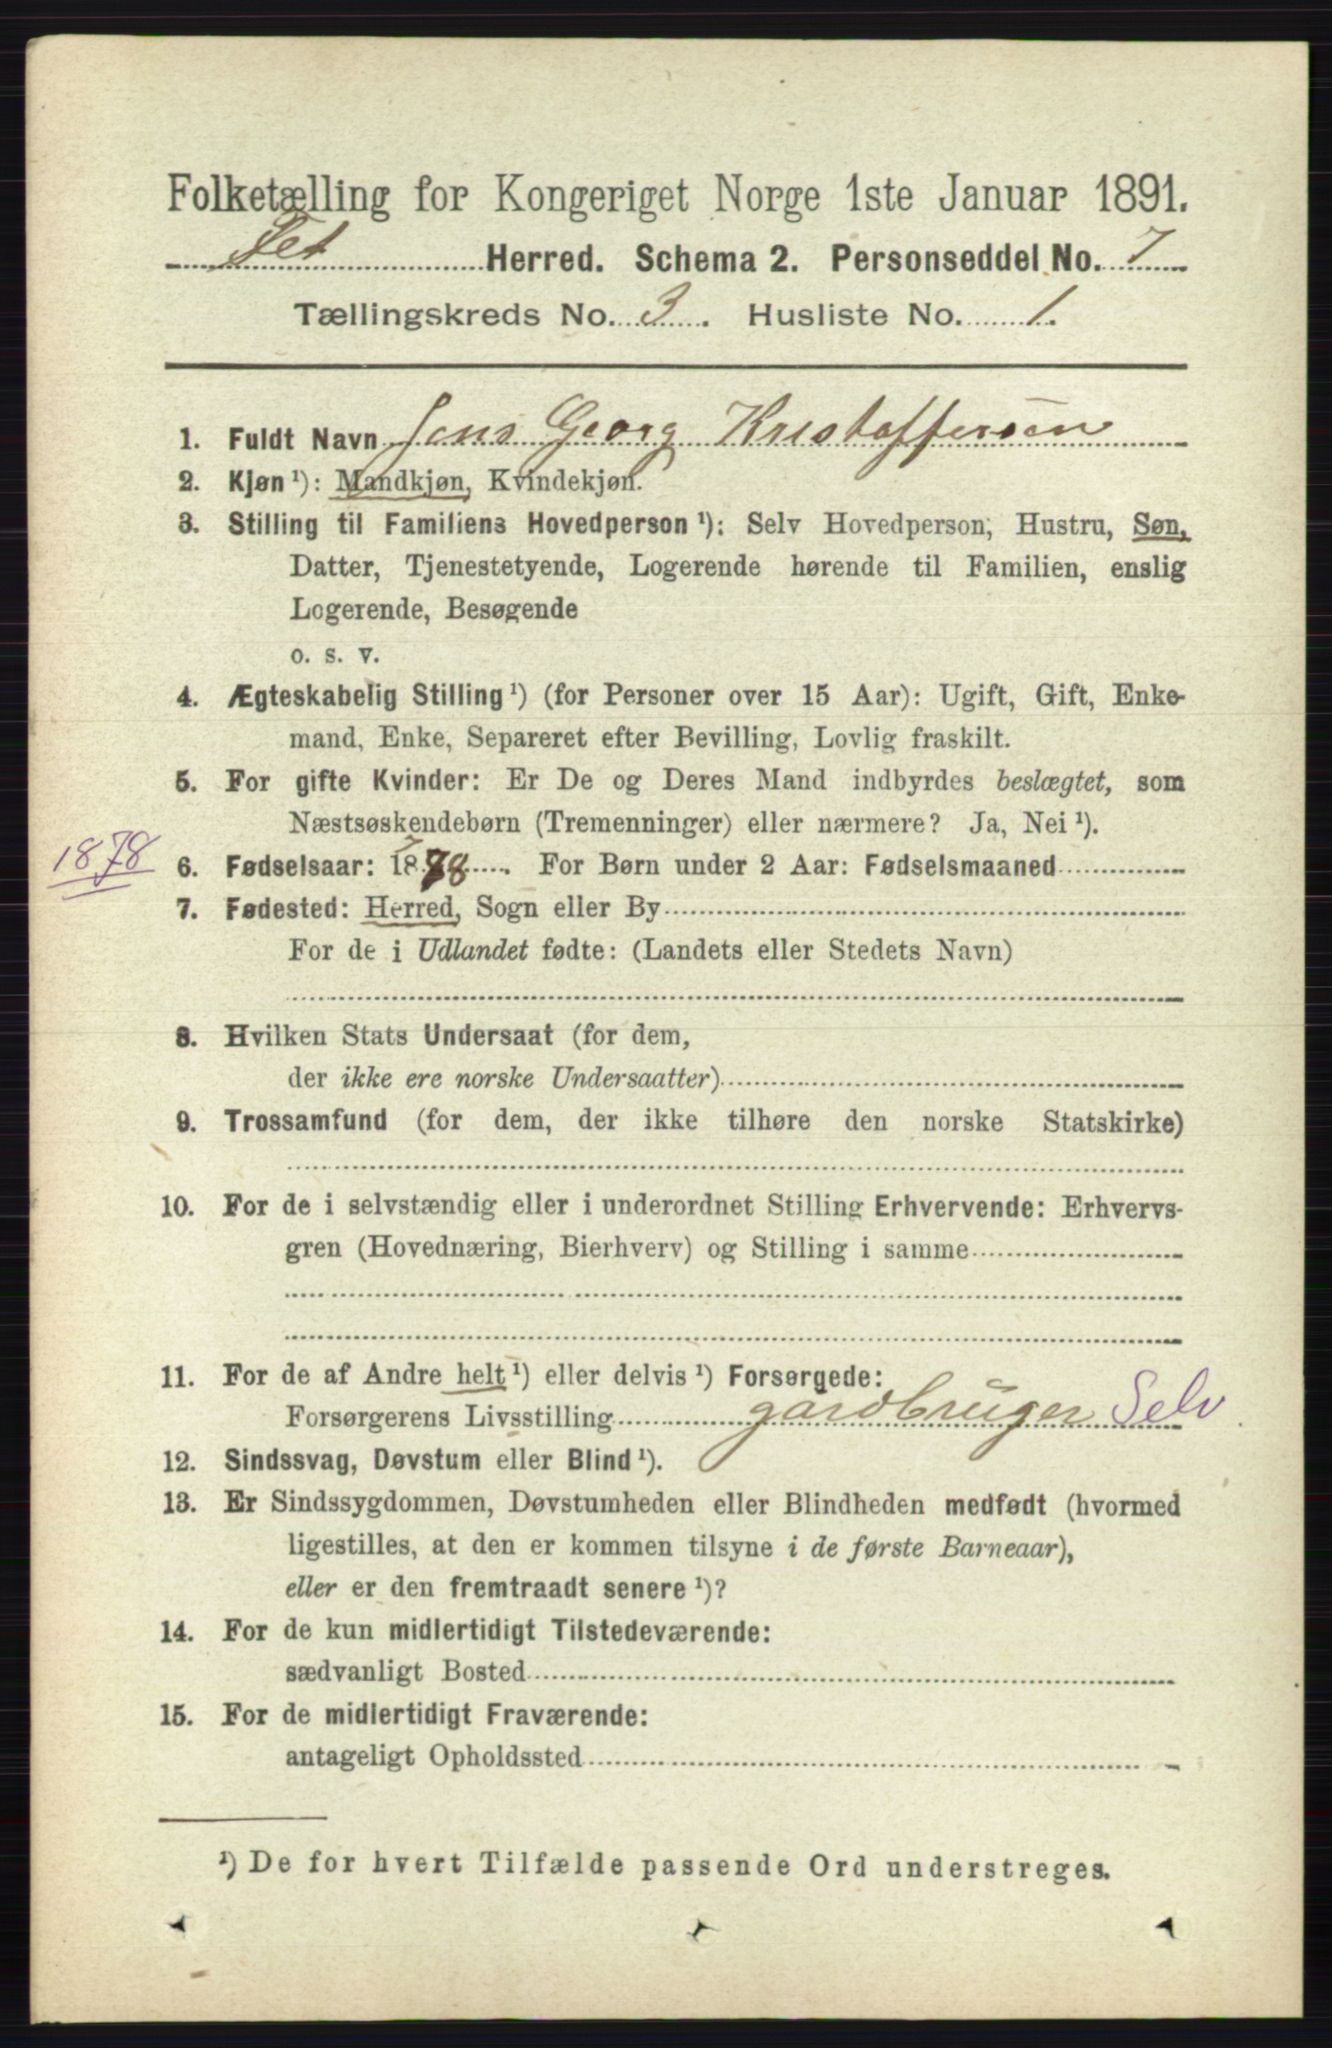 Folketælling for Kongeriget Norge 1ste Januar 1891.
Fet Herred. Schema 2. Personseddel No. 7
Tællingskreds No. 3. Husliste No. 1.
1. Fuldt Navn Jens Georg Kristoffersen
2. Kjøn ¹): Mandkjøn, Kvindekjøn.
3. Stilling til Familiens Hovedperson ¹): Selv Hovedperson, Hustru, Søn,
Datter, Tjenestetyende, Logerende hørende til Familien, enslig
Logerende, Besøgende
o. s. v.
4. Ægteskabelig Stilling ¹) (for Personer over 15 Aar): Ugift, Gift, Enke-
mand, Enke, Separeret efter Bevilling, Lovlig fraskilt.
5. For gifte Kvinder: Er De og Deres Mand indbyrdes beslægtet, som
Næstsøskendebørn (Tremenninger) eller nærmere? Ja, Nei ¹).
1878
6. Fødselsaar: 1878. For Børn under 2 Aar: Fødselsmaaned
7. Fødested: Herred, Sogn eller By
For de i Udlandet fødte: (Landets eller Stedets Navn)
8. Hvilken Stats Undersaat (for dem,
der ikke ere norske Undersaatter)
9. Trossamfund (for dem, der ikke tilhøre den norske Statskirke)
10. For de i selvstændig eller i underordnet Stilling Erhvervende: Erhvervs-
gren (Hovednæring, Bierhverv) og Stilling i samme
11. For de af Andre helt ¹) eller delvis ¹) Forsørgede:
Forsørgerens Livsstilling gårdbruger Selv
12. Sindssvag, Døvstum eller Blind ¹).
13. Er Sindssygdommen, Døvstumheden eller Blindheden medfødt (hvormed
ligestilles, at den er kommen tilsyne i de første Barneaar),
eller er den fremtraadt senere ¹)?
14. For de kun midlertidigt Tilstedeværende:
sædvanligt Bosted
15. For de midlertidigt Fraværende:
antageligt Opholdssted
¹) De for hvert Tilfælde passende Ord understreges.